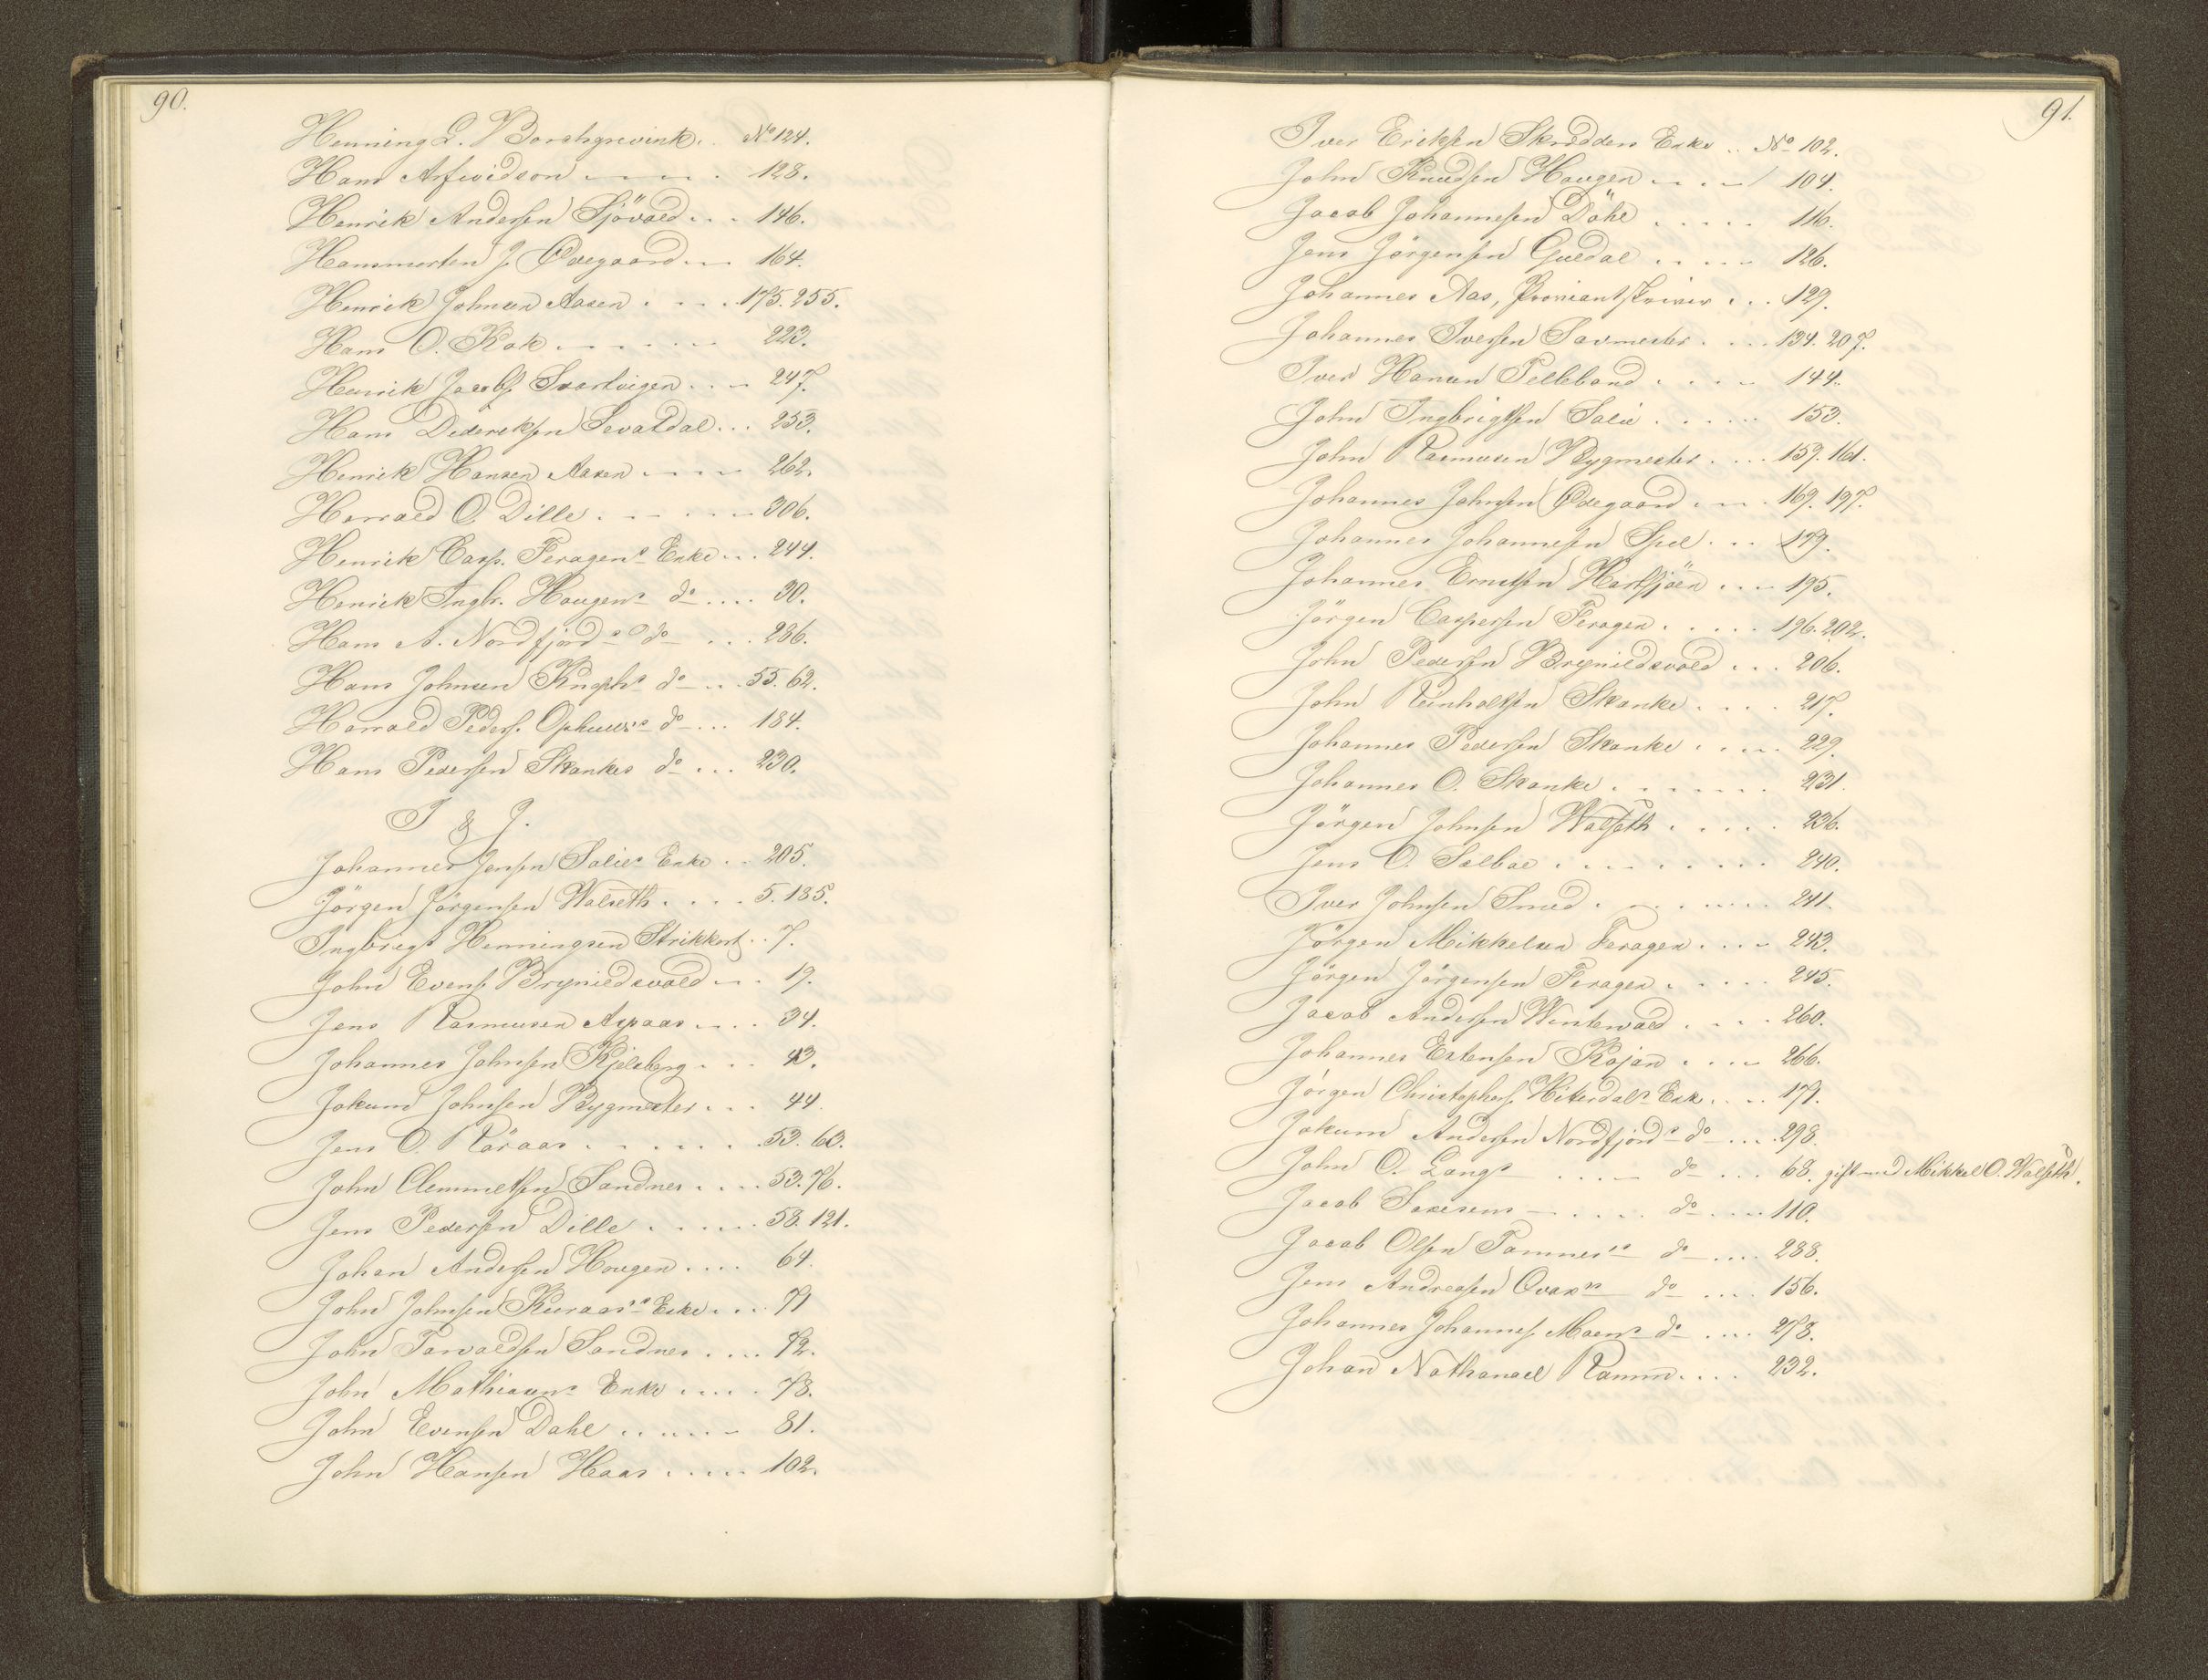 90.
Henning L. Borchgrevink . . No 124.
Hans Arfwidson . . . . 128.
Henrik Andersen Sjövold . . . 146.
Hansmorten J. Ødegaard . . . 164.
Henrik Johnsen Aasen . . . . 175. 255.
Hans O. Kok . . . . . 223.
Henrik Jacobs. Svartvigen . . . 247.
Hans Dideriksen Sevatdal . . . 253.
Henrik Hansen Aasen . . . . 262.
Harrald O. Dille . . . . . . 306.
Henrik Casp. Feragens Enke . . . 244.
Henrik Ingb. Hougens do . . . . 30.
Hans A. Nordfjords do . . . 286.
Hans Johnsen Knophs do . . . 55. 62.
Harrald Peders. Ophuus's do . . . 184.
Hans Pedersen Skankes do . . . 230.
I & J.
Johannes Jensen Salies Enke . . 205.
Jörgen Jörgensen Walseth . . . . 5. 185.
Ingbrigt Henningsen Strikkert . . 7.
John Evens. Brynildsvold . . . 19.
Jens Rasmusen Aspaas . . . . 34.
Johannes Johnsen Kjelsberg . . . 43.
Jokum Johnsen Bygmester . . . 44.
Jens O. Röraas . . . . . . 53. 63.
John Clemmetsen Sandnes . . . . 53. 76.
Jens Pedersen Dille . . . . . . 58. 121.
Johan Andersen Hougen . . . . 64.
John Johnsen Kuraas's Enke . . . 71
John Tarvaldsen Sandnes . . . . 72.
John Mathisens Enke . . . . . 78.
John Evensen Dahl . . . . . . 81.
John Hansen Haas . . . . . 102.
91.
Iver Eriksen Skrædders Enke . . No 102.
John Knudsen Hougen . . . . 104.
Jacob Johannesen Döhl . . . . . 116.
Jens Jörgensen Guldal . . . . . 126.
Johannes Aas, Proviantskriver . . . 129.
Johannes Iversen Savmester . . . . 134. 207.
Iver Hansen Pelleband . . . . . 144.
John Ingbrigtsen Salie . . . . . . 153.
John Rasmusen Bygmester . . . . 159. 161.
Johannes Johnsen Ødegaard . . . . 169. 197.
Johannes Johannesen Spel . . . 179.
Johannes Erntsen Hartsjöen . . . . 195.
Jörgen Caspersen Feragen . . . . . 196. 202.
John Pedersen Brynildsvold . . . 206.
John Reinholtsen Skanke . . . . 217.
Johannes Pedersen Skanke . . . . . 229.
Johannes O. Skanke . . . . . . . 231.
Jörgen Johnsen Walseth . . . . . 236.
Jens O. Selboe . . . . . . . . . 240.
Iver Johnsen Smed . . . . . . . 241.
Jörgen Mikkelsen Feragen . . . . 243.
Jörgen Jörgensen Feragen . . . . . 245.
Jacob Andersen Wintervold . . . . 260.
Johannes Estensen Kojan . . . . 266.
Jörgen Christophers. Hiterdals Enk. . . . 171.
Jokum Andersen Nordfjords do . . . . 298.
John O. Langs . . . . do . . . 68. gift med Mikkel O. Walseth.
Jacob Saxesens . . . . do . . . . 110.
Jacob Olsen Tamnes's do . . . . 288.
Jens Andreasen Qvak's do . . . . 156.
Johannes Johannes. Moens do . . . . 278.
Johan Nathanael Ramm . . . . 232.